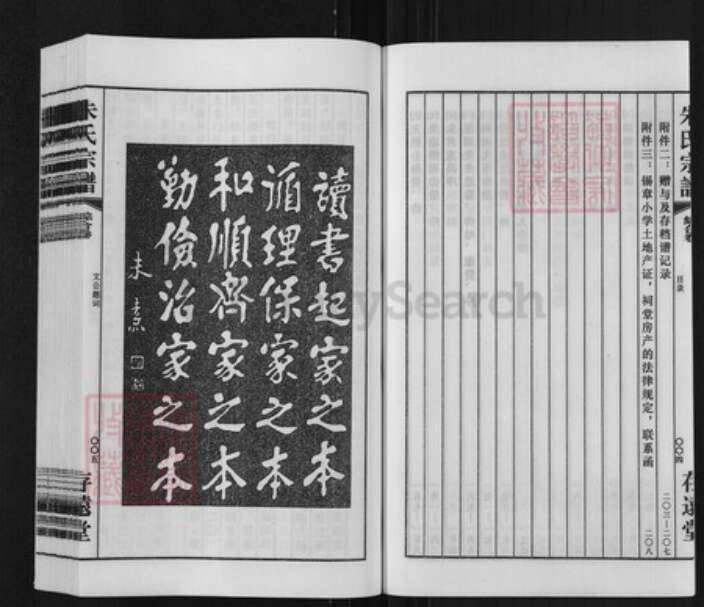 朱氏宗譜
綜合卷
目录
〇〇四
存遠堂
附件二：赠与及存档谱记录
二〇三—二〇七
附件三：锡章小学土地产证，祠堂房产的法律规定，联系函
二〇八
讀書起家之本
循理保家之本
和順齊家之本
勤儉治家之本
朱熹
朱氏宗譜
綜合卷
文公题词
〇〇五
存遠堂
MySearch